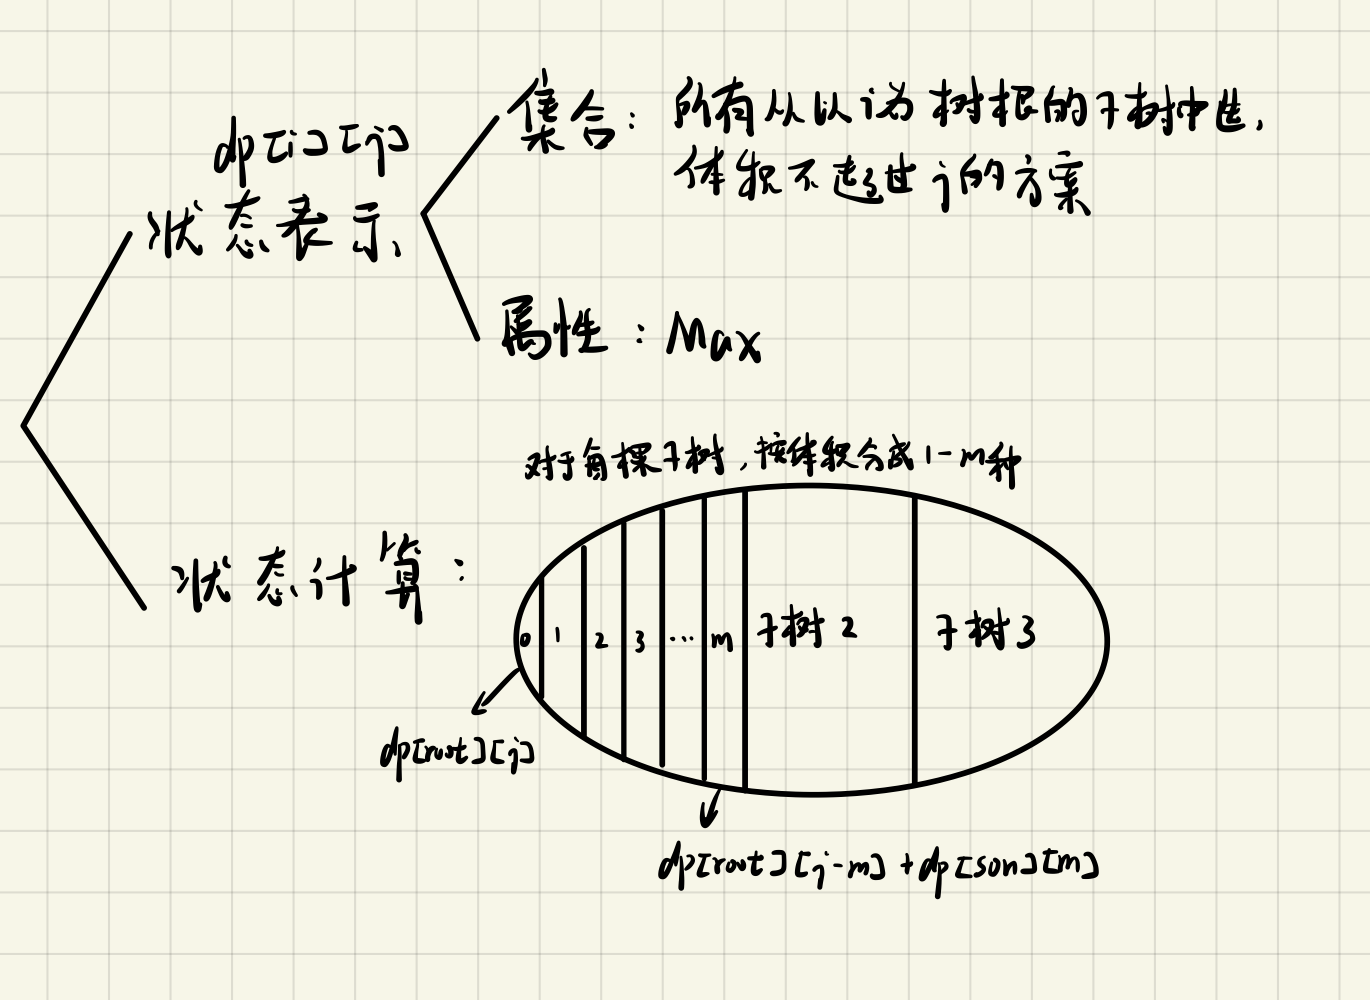 dp[i][j]
状态表示
集合：所有从以i为树根的子树中选，
体积不超过j的方案
属性：Max
对于每棵子树，按体积分成1-m种
状态计算：
0 1 2 3 ... m 子树2 子树3
dp[root][j]
dp[root][j-m]+dp[son][m]